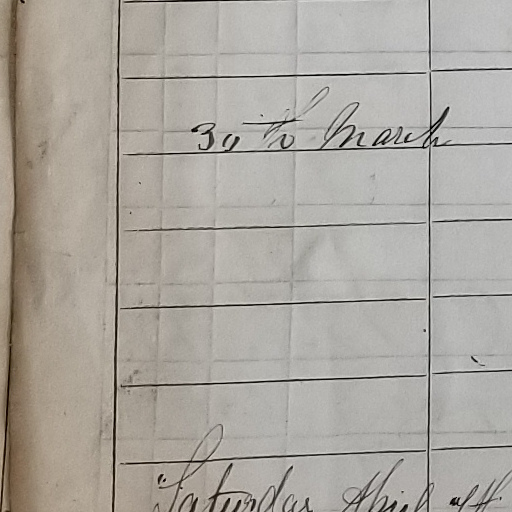 30th March
Saturday April